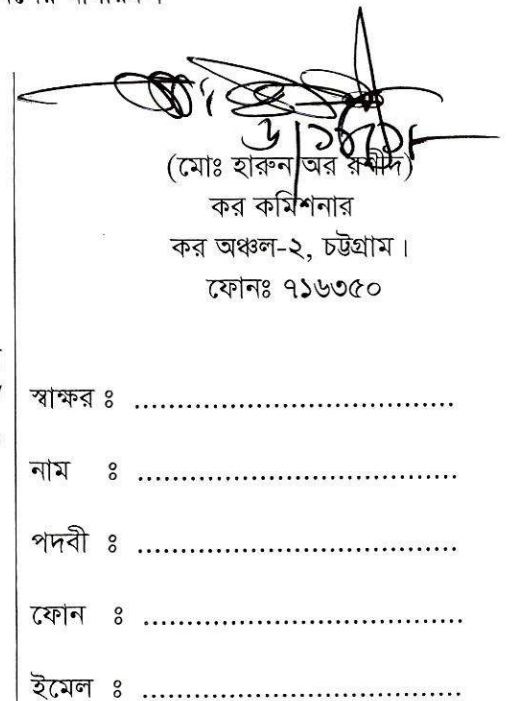 (মোঃ হারুন অর রশীদ)
কর কমিশনার
কর অঞ্চল-২, চট্টগ্রাম।
ফোনঃ ৭১৬৩৫০
স্বাক্ষর ঃ ....................................
নাম ঃ ....................................
পদবী ঃ ....................................
ফোন ঃ ....................................
ইমেল ঃ ....................................